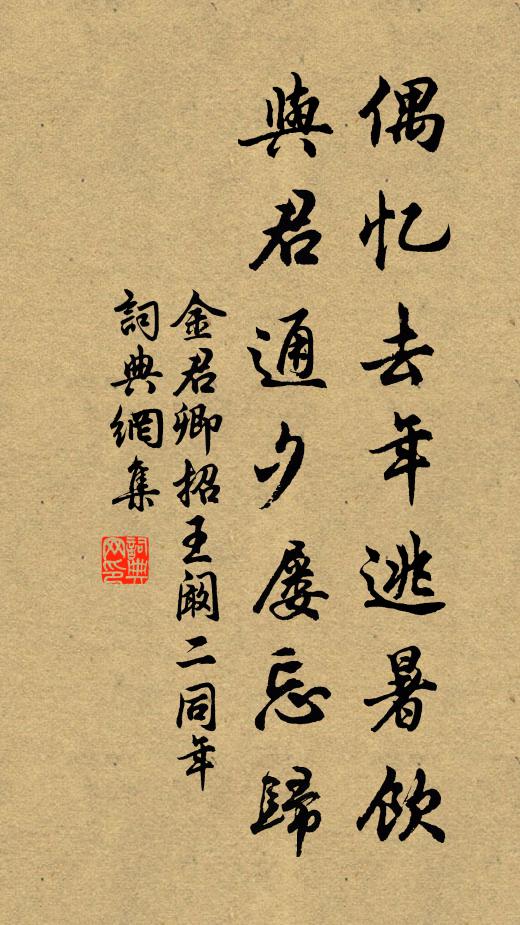 偶忆去年逃暑飲
與君通夕屡忘歸
金君卿招王阚二同年
詞典網集
詞典网印